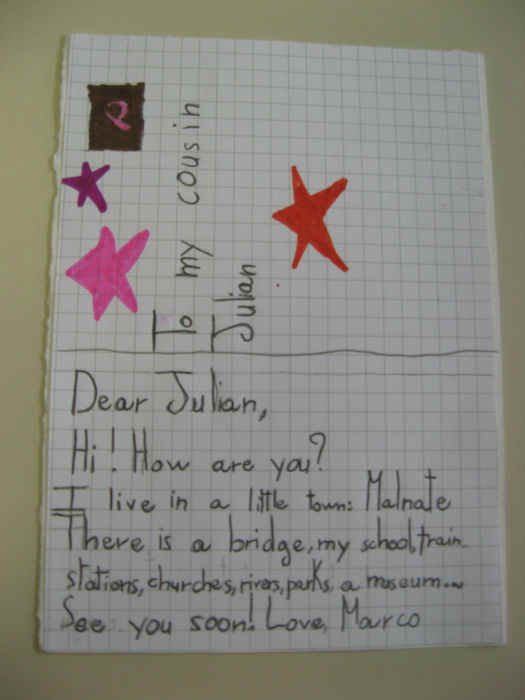 To my cousin
Julian
Dear Julian,
Hi! How are you?
I live in a little town: Malnate
There is a bridge, my school, train
stations, churches, rivers, parks, a museum...
See you soon! Love, Marco